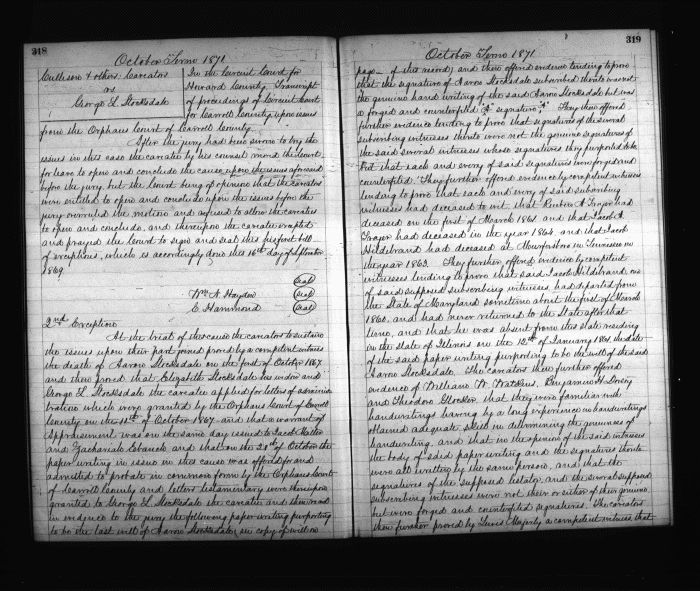 318
October Term 1871
Cullison & others: Caveators
vs
George L. Stocksdale
In the Circuit Court for
Howard County. Transcript
of proceedings of Circuit Court
for Carroll County, upon issues
from the Orphans Court of Carroll County.
After the jury had been sworn to try the
issues in this case the caveatee by his counsel moved the Court
for leave to open and conclude the cause upon the issues aforesaid
before the jury, but the Court being of opinion that the caveators
were entitled to open and conclude upon the issues before the
jury overruled the motion and refused to allow the caveatee
to open and conclude, and thereupon the caveatee excepted
and prayed the Court to sign and seal this his first bill
of exceptions, which is accordingly done this 16th day of September
1869.
Wm N. Hayden (seal)
E Hammond (seal)
(seal)
2nd Exception
At the trial of this cause the caveators to sustain
the issues upon their part joined proved by a competent witness
the death of Aaron Stocksdale on the first of October 1867
and then proved that Elizabeth Stocksdale his widow and
George L. Stocksdale the caveatee applied for letters of adminis
tration which were granted by the Orphans Court of Carroll
County on the 11th of October 1867. and that a warrant of
Appraisement was on the same day issued to Jacob Matter
and Zachariah Ebaugh, and that on the 21st of October the
paper writing in issue in this cause was offered for and
admitted to probate in common form by the Orphans Court
of Carroll County and letters testamentary were thereupon
granted to George L. Stocksdale the caveatee and then read
in evidence to the jury the following paper writing purporting
to be the last will of Aaron Stocksdale, (in copy of will on
319
October Term 1871
page — of this record) and then offered evidence tending to prove
that the signature of Aaron Stocksdale subscribed thereto was not
the genuine hand writing of the said Aaron Stocksdale but was
a forged and counterfeited signature. They then offered
further evidence tending to prove that signatures of the several
subscribing witnesses thereto were not the genuine signatures of
the said several witnesses whose signatures they purported to be.
But that each and every of said signatures were forged and
counterfeited. They further offered evidence by competent witnesses
tending to prove that each and every of said subscribing
witnesses had deceased to wit, that Reuben A Frazer had
deceased on the first of March 1861 and that Jacob A.
Frazer had deceased in the year 1864. and that Jacob
Hildebrand had deceased at Murfresboro in Tennessee in
the year 1863. They further offered evidence by competent
witnesses tending to prove that said Jacob Hildebrand, one
of said supposed subscribing witnesses, had departed from
the State of Maryland sometime about the first of March
1860. and had never returned to the State after that
time, and that he was absent from this state residing
in the State of Illinois on the 12th of January 1861. the date
of the said paper writing purporting to be the will of the said
Aaron Stocksdale. The caveators then further offered
evidence of William W. Watkins, Benjamin H. Dorsey
and Theodore Glocker, that they were familiar with
handwritings having by a long experience in handwritings
obtained adequate skill in determining the genuiness of
handwriting, and that in the opinion of the said witnesses
the body of said paper writing and the signatures thereto
were all written by the same person, and that the
signatures of the supposed testator and the several supposed
subscribing witnesses were not their or either of their genuine
but were forged and counterfeited signatures. The caveators
then further proved by Lewis Magerly a competent witness that